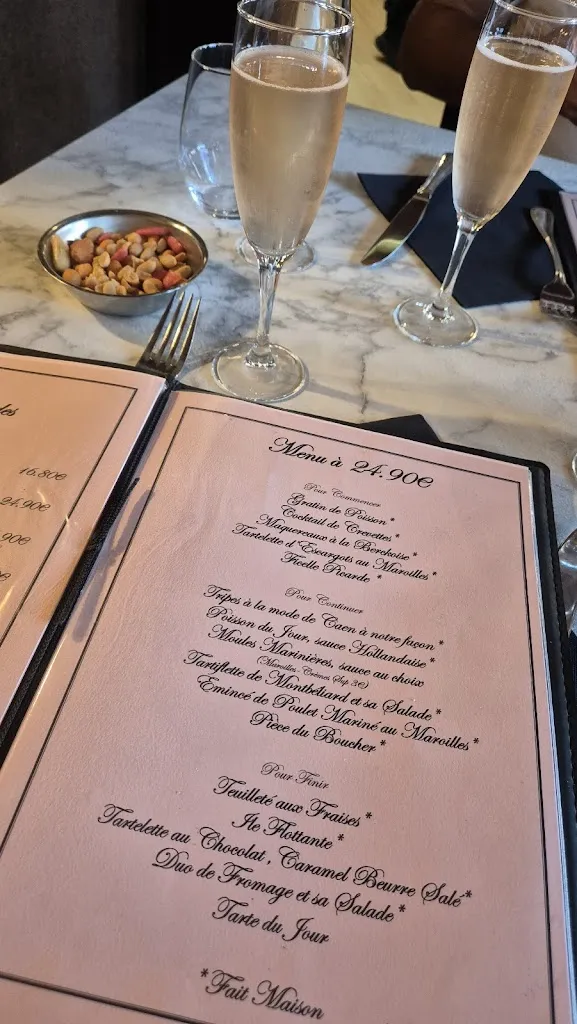 des
16.80€
24.90€
.90€
0€
Menu à 24.90€
Pour Commencer
Gratin de Poisson *
Cocktail de Crevettes *
Maquereaux à la Berckoise *
Tartelette d'Escargots au Maroilles *
Ficelle Picarde *
Pour Continuer
Tripes à la mode de Caen à notre façon *
Poisson du Jour, sauce Hollandaise *
Moules Marinières, sauce au choix
(Maroilles - Crèmes Sup 3€)
Tartiflette de Montbéliard et sa Salade *
Emincé de Poulet Mariné au Maroilles *
Pièce du Boucher *
Pour Finir
Feuilleté aux Fraises *
Ile Flottante *
Tartelette au Chocolat, Caramel Beurre Salé *
Duo de Fromage et sa Salade *
Tarte du Jour
*Fait Maison